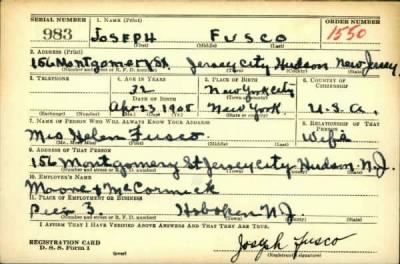 SERIAL NUMBER 1. NAME (Print) ORDER NUMBER
983 JOSEPH FUSCO 1550
(First) (Middle) (Last)
2. ADDRESS (Print)
156 Montgomery St. Jersey City Hudson New Jersey
(Number and street or R. F. D. number) (Town) (County) (State)
3. TELEPHONE 4. AGE IN YEARS 5. PLACE OF BIRTH 6. COUNTRY OF CITIZENSHIP
32 New York City
DATE OF BIRTH (Town or county)
Apr 23 1908 New York U.S.A.
(Exchange) (No.) (Mo.) (Day) (Yr.) (State or country)
7. NAME OF PERSON WHO WILL ALWAYS KNOW YOUR ADDRESS 8. RELATIONSHIP OF THAT PERSON
Mrs Helen Fusco. Wife
(Mr., Mrs., Miss) (First) (Middle) (Last)
9. ADDRESS OF THAT PERSON
156 Montgomery St Jersey City Hudson N.J.
(Number and street or R. F. D. number) (Town) (County) (State)
10. EMPLOYER'S NAME
Moore & McCormick
11. PLACE OF EMPLOYMENT OR BUSINESS
Pier 3. Hoboken N.J.
(Number and street or R. F. D. number) (Town) (County) (State)
I AFFIRM THAT I HAVE VERIFIED ABOVE ANSWERS AND THAT THEY ARE TRUE.
REGISTRATION CARD
D. S. S. Form 1 (over) Joseph Fusco
(Registrant's signature)